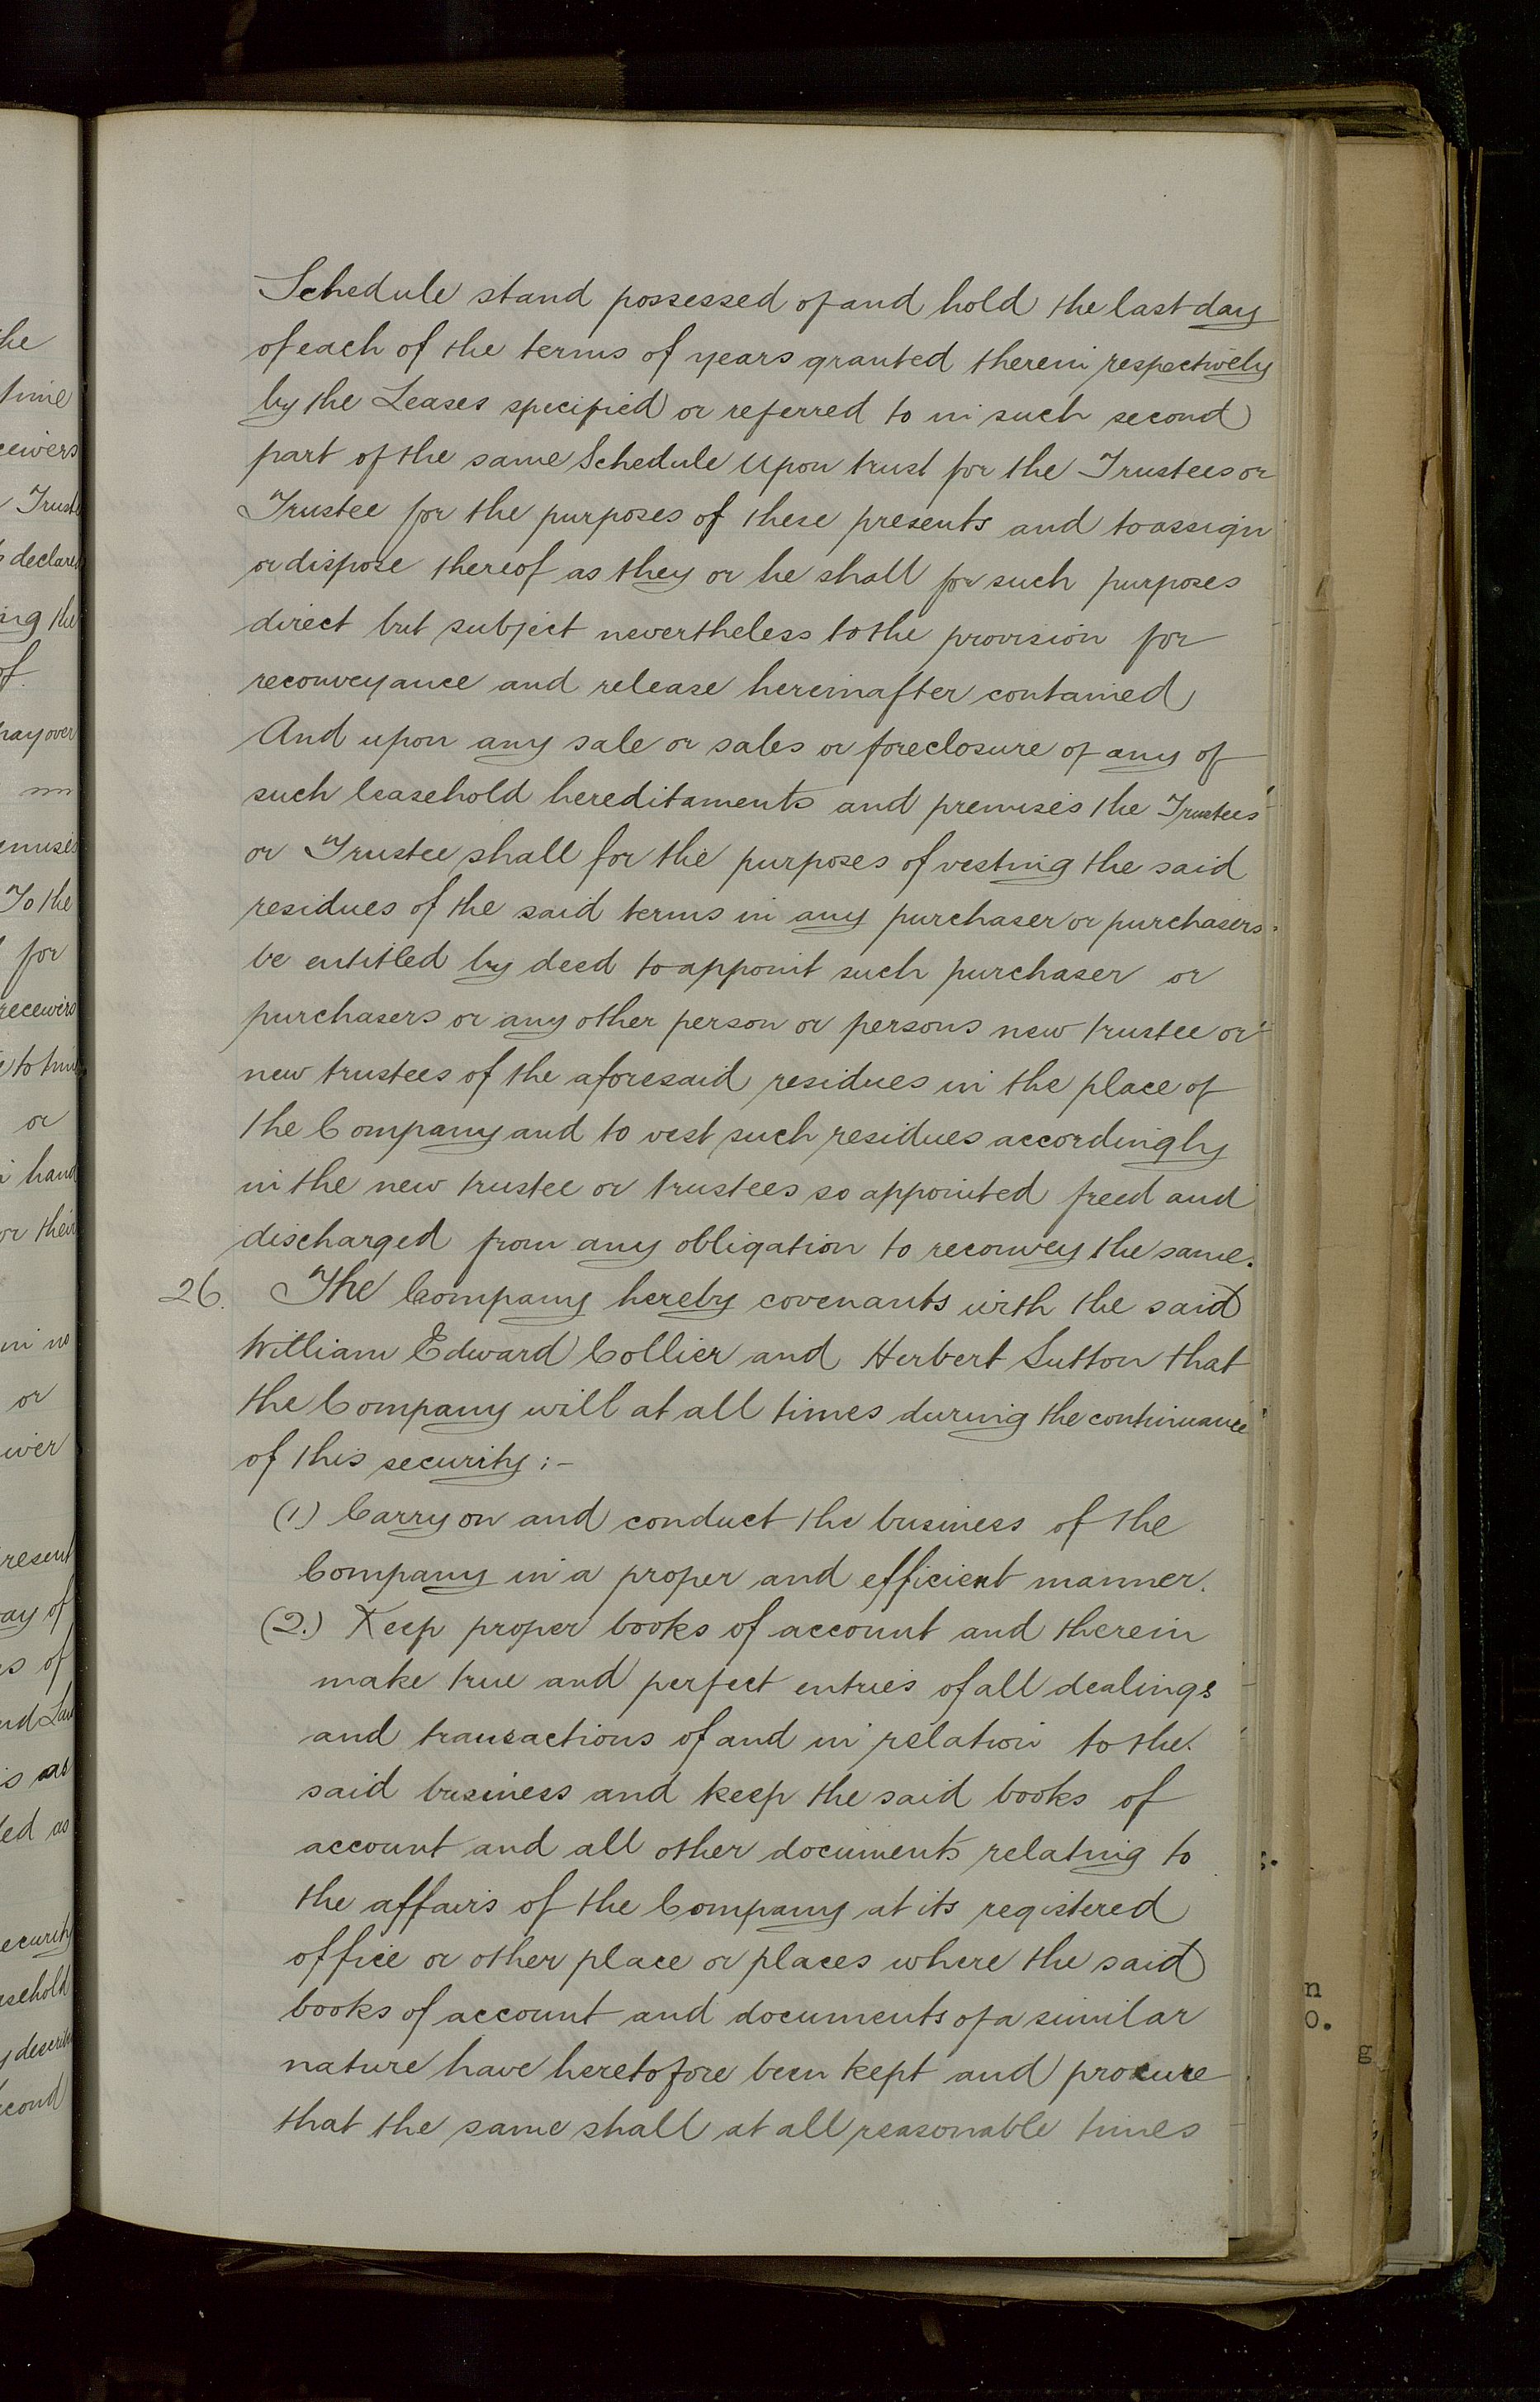 Schedule stand possessed of and hold the last day
of each of the terms of years granted therein respectively
by the Leases specified or referred to in such second
part of the same Schedule Upon trust for the Trustees or
Trustee for the purposes of these presents and to assign
or dispose thereof as they or he shall for such purposes
direct but subject nevertheless to the provision for
reconveyance and release hereinafter contained
And upon any sale or sales or foreclosure of any of
such leasehold hereditaments and premises the Trustees
or Trustee shall for the purposes of vesting the said
residues of the said terms in any purchaser or purchasers
be entitled by deed to appoint such purchaser or
purchasers or any other person or persons new trustee or
new trustees of the aforesaid residues in the place of
the Company and to vest such residues accordingly
in the new trustee or trustees so appointed freed and
discharged from any obligation to reconvey the same.
26. The Company hereby covenants with the said
William Edward Collier and Herbert Sutton that
the Company will at all times during the continuance
of this security :-
(1) Carry on and conduct the business of the
Company in a proper and efficient manner.
(2.) Keep proper books of account and therein
make true and perfect entries of all dealings
and transactions of and in relation to the
said business and keep the said books of
account and all other documents relating to
the affairs of the Company at its registered
office or other place or places where the said
books of account and documents of a similar
nature have heretofore been kept and procure
that the same shall at all reasonable times
he
time
ceivers
Trust
declare
ing the
of.
pay over
emises
To the
for
receivers
to time
or
hand
or their
in no
or
iver
resent
ay of
s of
nd Law
is as
led as
ecurity
asehold
y describe
econd
n
o.
g